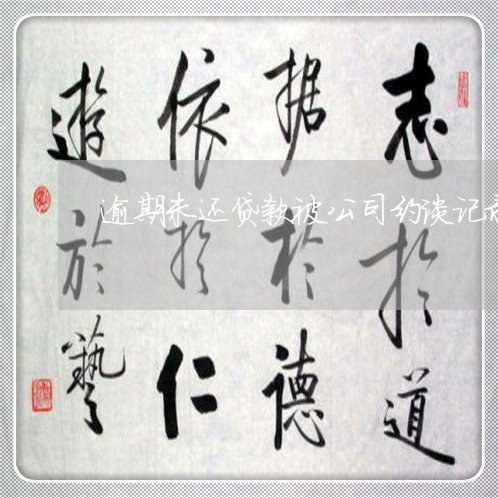 志於道
据於德
依於仁
遊於藝
逾期未还贷款被公司约谈记